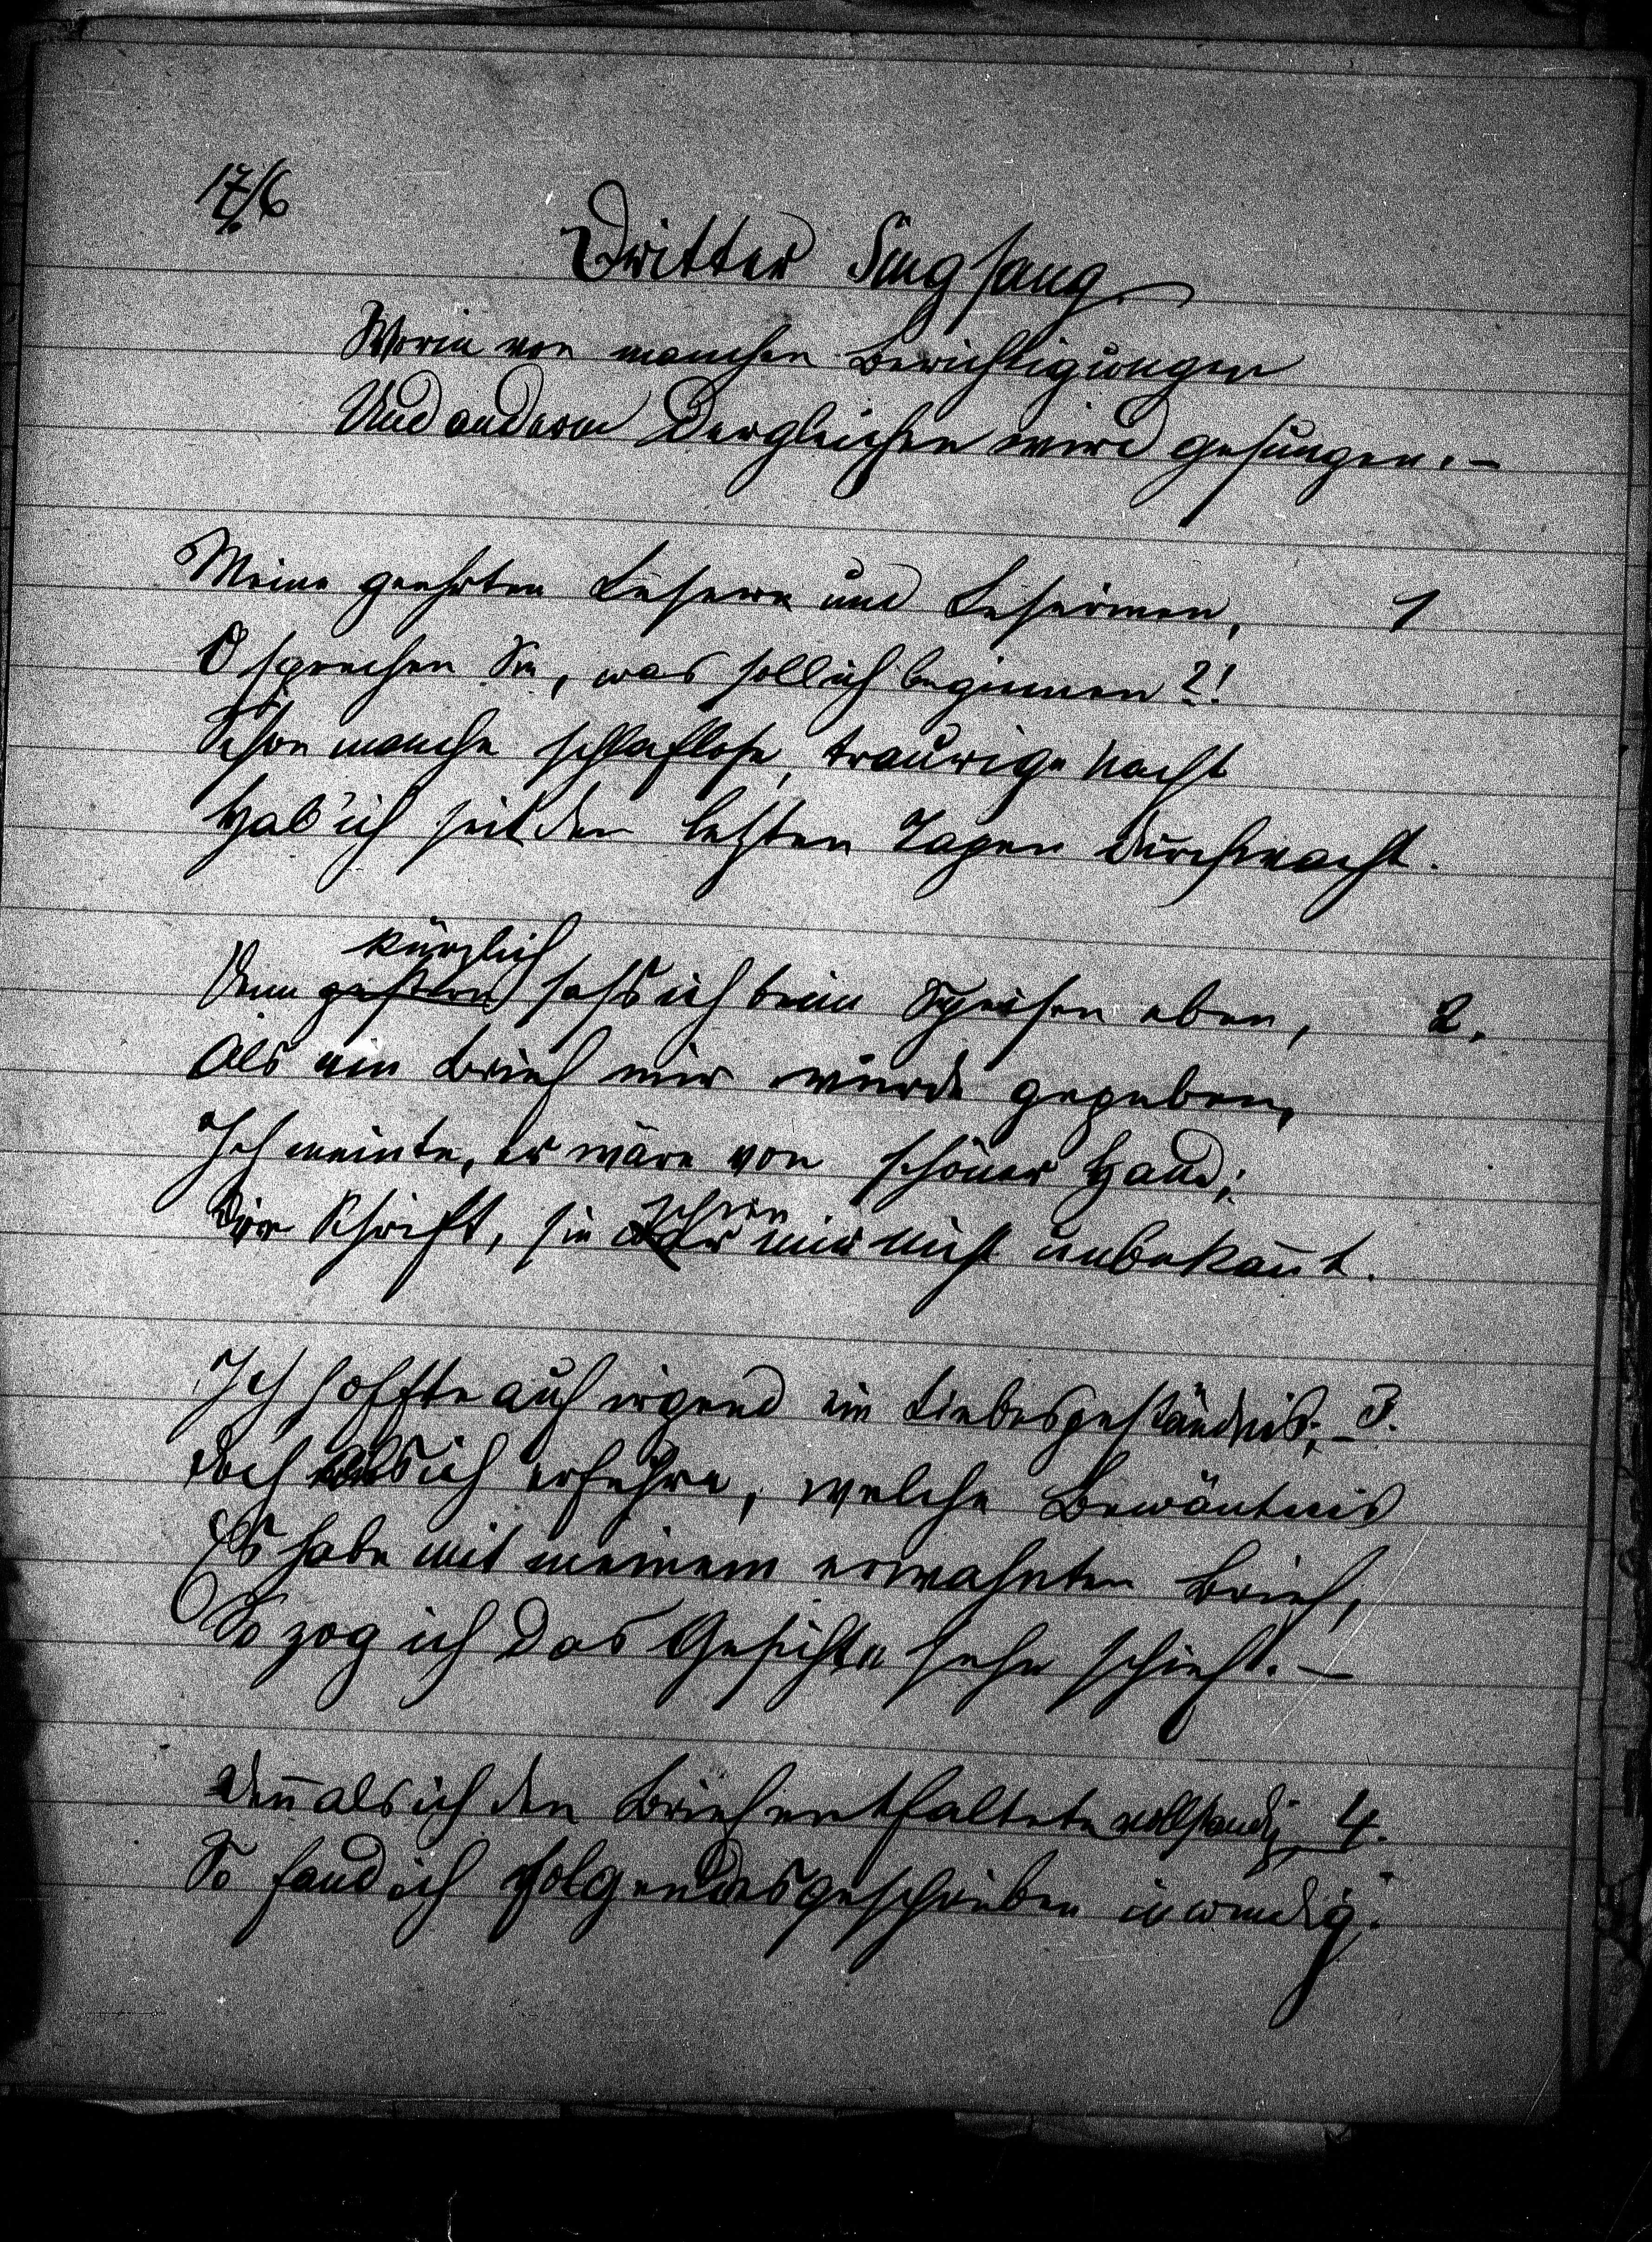 17/6
Dritter Singsang
Worin von manchen Berichtigungen
Und anderen Dergleichen wird gesungen. –
Meine geehrten Lesern und Leserinnen, 1
O sprechen Sie, was soll ich beginnen?!
Schon manche schlaflose, traurige Nacht
Hab' ich seit den letzten Tagen durchwacht.
kürzlich
Denn gestern saß ich beim Speisen eben, 2.
Als ein Brief mir wurde gegeben,
Ich meinte, er wäre von schöner Hand;
schien
Die Schrift, sie war mir nicht unbekannt.
Ich hoffte auf irgend ein Liebesgeständnis; – 3.
Doch als ich erfuhr, welche Bewäntnis
Es habe mit meinem erwähnten Brief,
So zog ich das Gesichte sehr schief. –
Den̄ als ich den Brief entfaltete vollständig, 4.
So fand ich folgendes geschrieben inwendig: